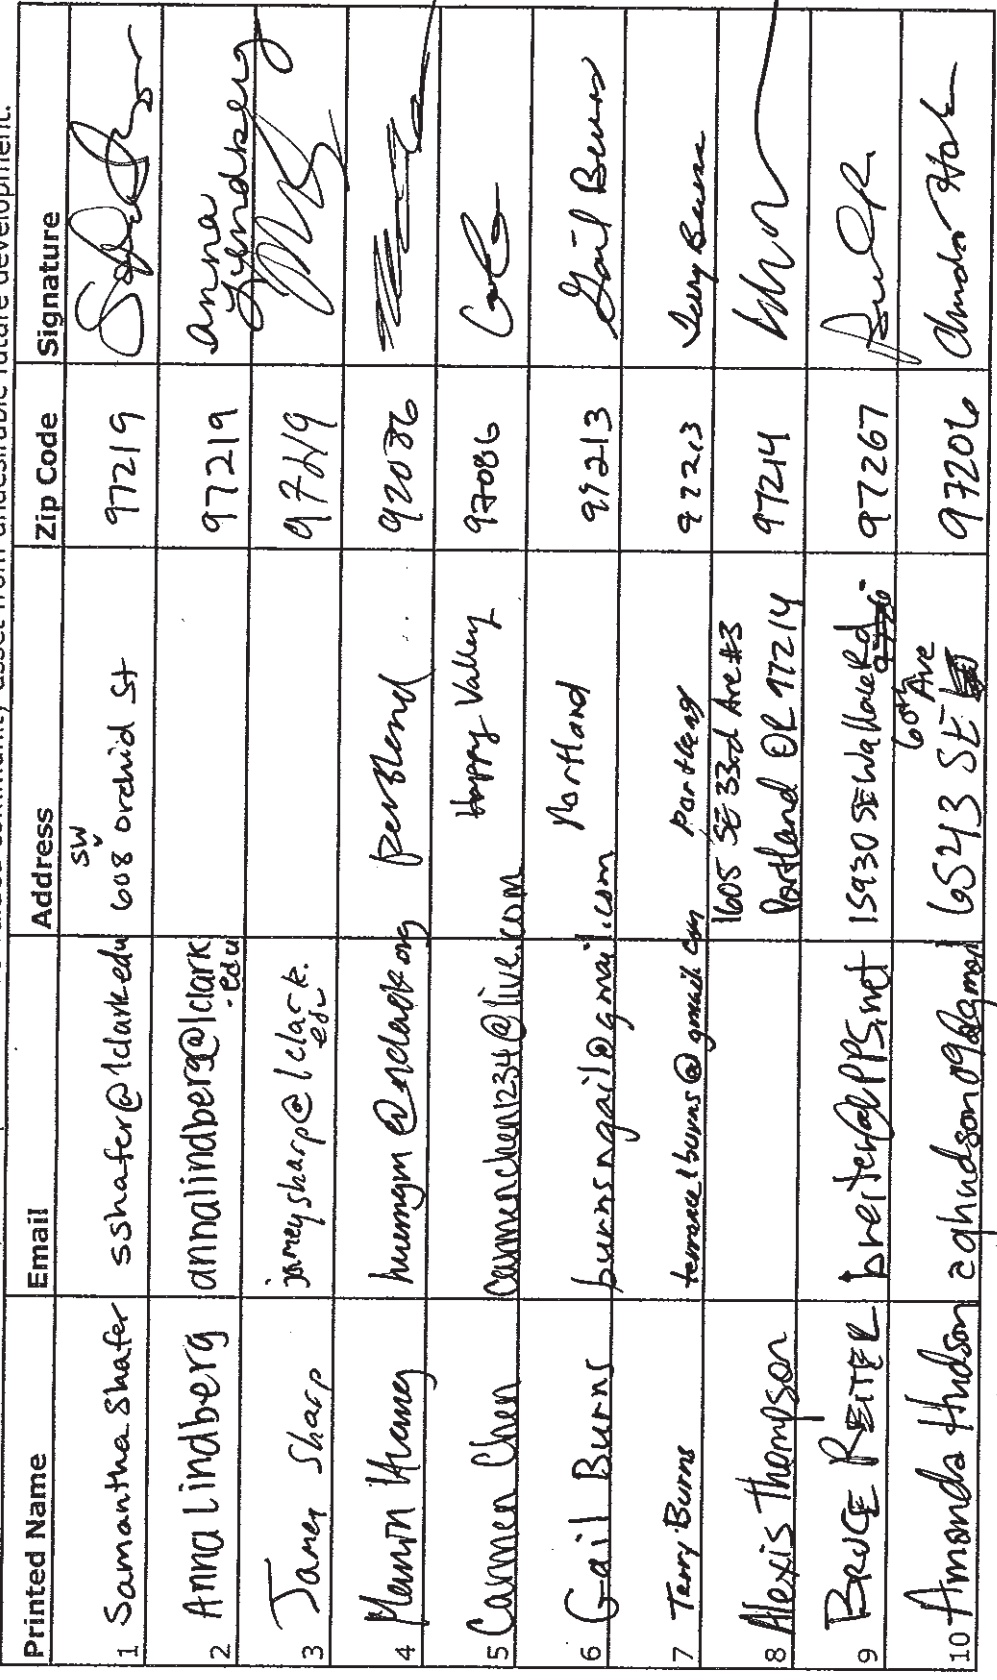 community asset from undesirable future development.
Printed Name Email Address Zip Code Signature
1 Samantha Shafer sshafer@lclark.edu 608 SW orchid St 97219
2 Anna Lindberg annalindberg@lclark.edu 97219 anna Lindberg
3 Jamey Sharp jameysharp@lclark.edu 97219
4 portland
5 Carmen Chen carmenchen1234@live.com Happy Valley 97086
6 Gail Burns burnsngail@gmail.com Portland 97213 Gail Burns
7 Terry Burns terrancelburns@gmail.com Portland 97213 Terry Burns
8 Alexis Thompson 1605 SE 33rd Ave #3 97214
Portland OR 97214
9 BRUCE REITER breiter@PPS.net 15930 SE Wallace Rd 97267
10 Amanda Hudson 6543 SE 60th Ave 97206